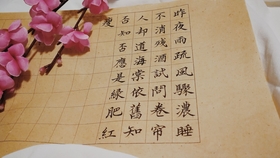 昨夜雨疏風驟濃睡
不消残酒試問卷帘
人却道海棠依舊知
否知否應是綠肥紅
瘦